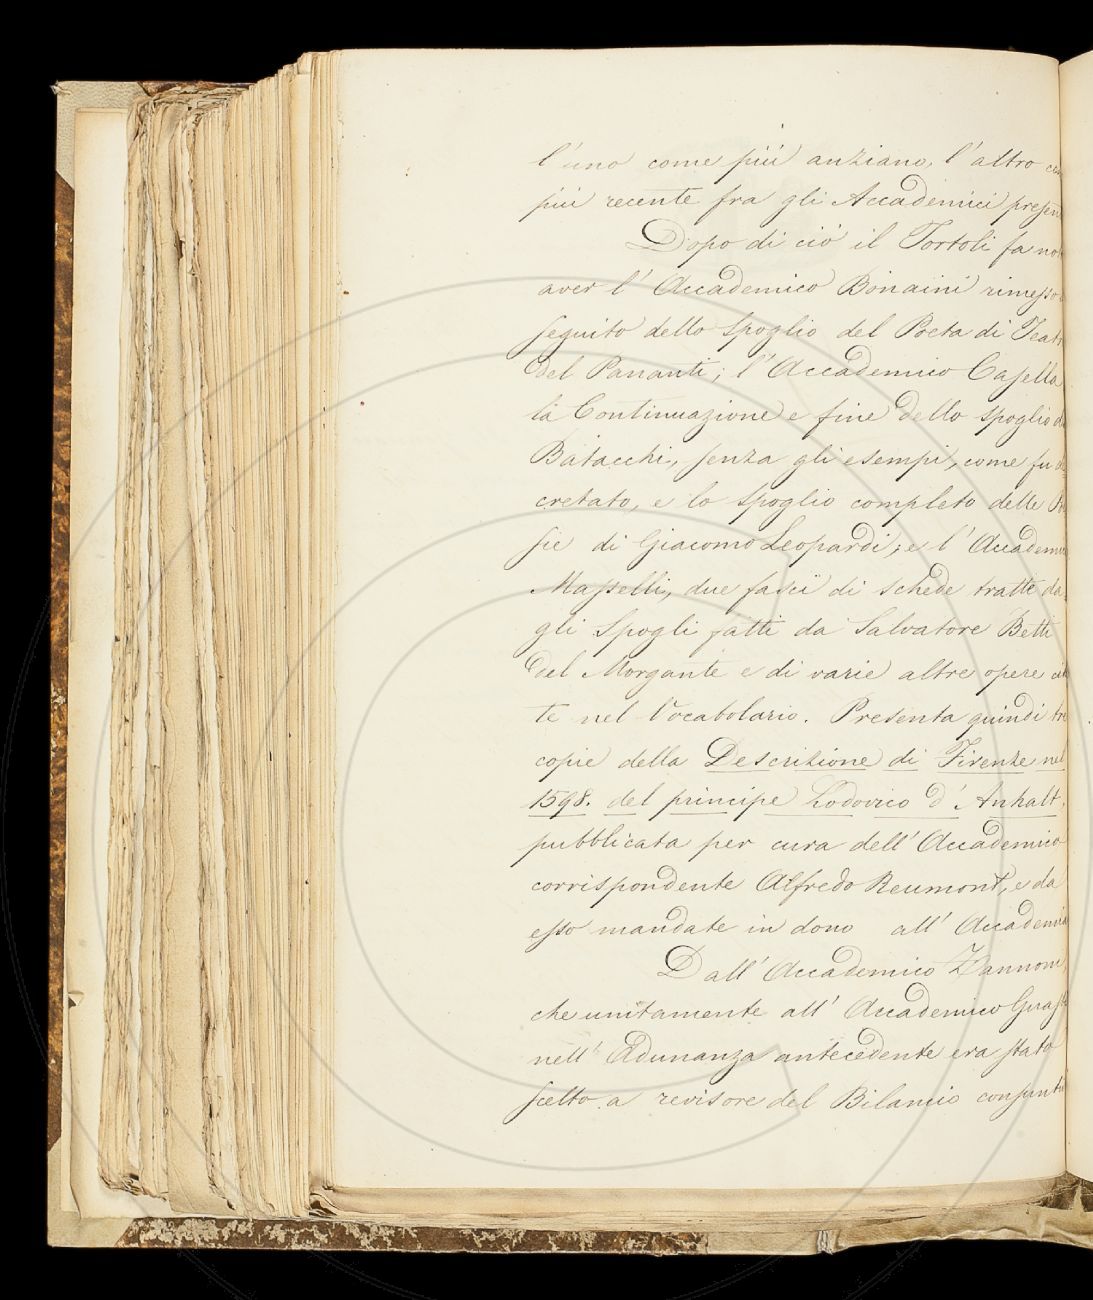 l'uno come più anziano, l'altro
più recente fra gli Accademici presen
Dopo di ciò il Tortoli fa no
aver l'Accademico Bonaini rimesso
seguito dello spoglio del Poeta di Teat
del Pananti; l'Accademico Casella
la Continuazione e fine dello spoglio d
Batacchi, senza gli esempi, come fu
cretato, e lo spoglio completo delle
sie di Giacomo Leopardi; e l'Accadem
Masselli, due fasci di schede tratte da
gli Spogli fatti da Salvatore Betti
del Morgante e di varie altre opere
te nel Vocabolario. Presenta quindi
copie della Descrizione di Firenze nel
1598. del principe Lodovico d'Anhalt.
pubblicata per cura dell'Accademico
corrispondente Alfredo Reumont, e da
esso mandate in dono all'Accademia
Dall'Accademico Zannoni,
che unitamente all'Accademico Guas
nell'Adunanza antecedente era stato
scelto a revisore del Bilancio consunt